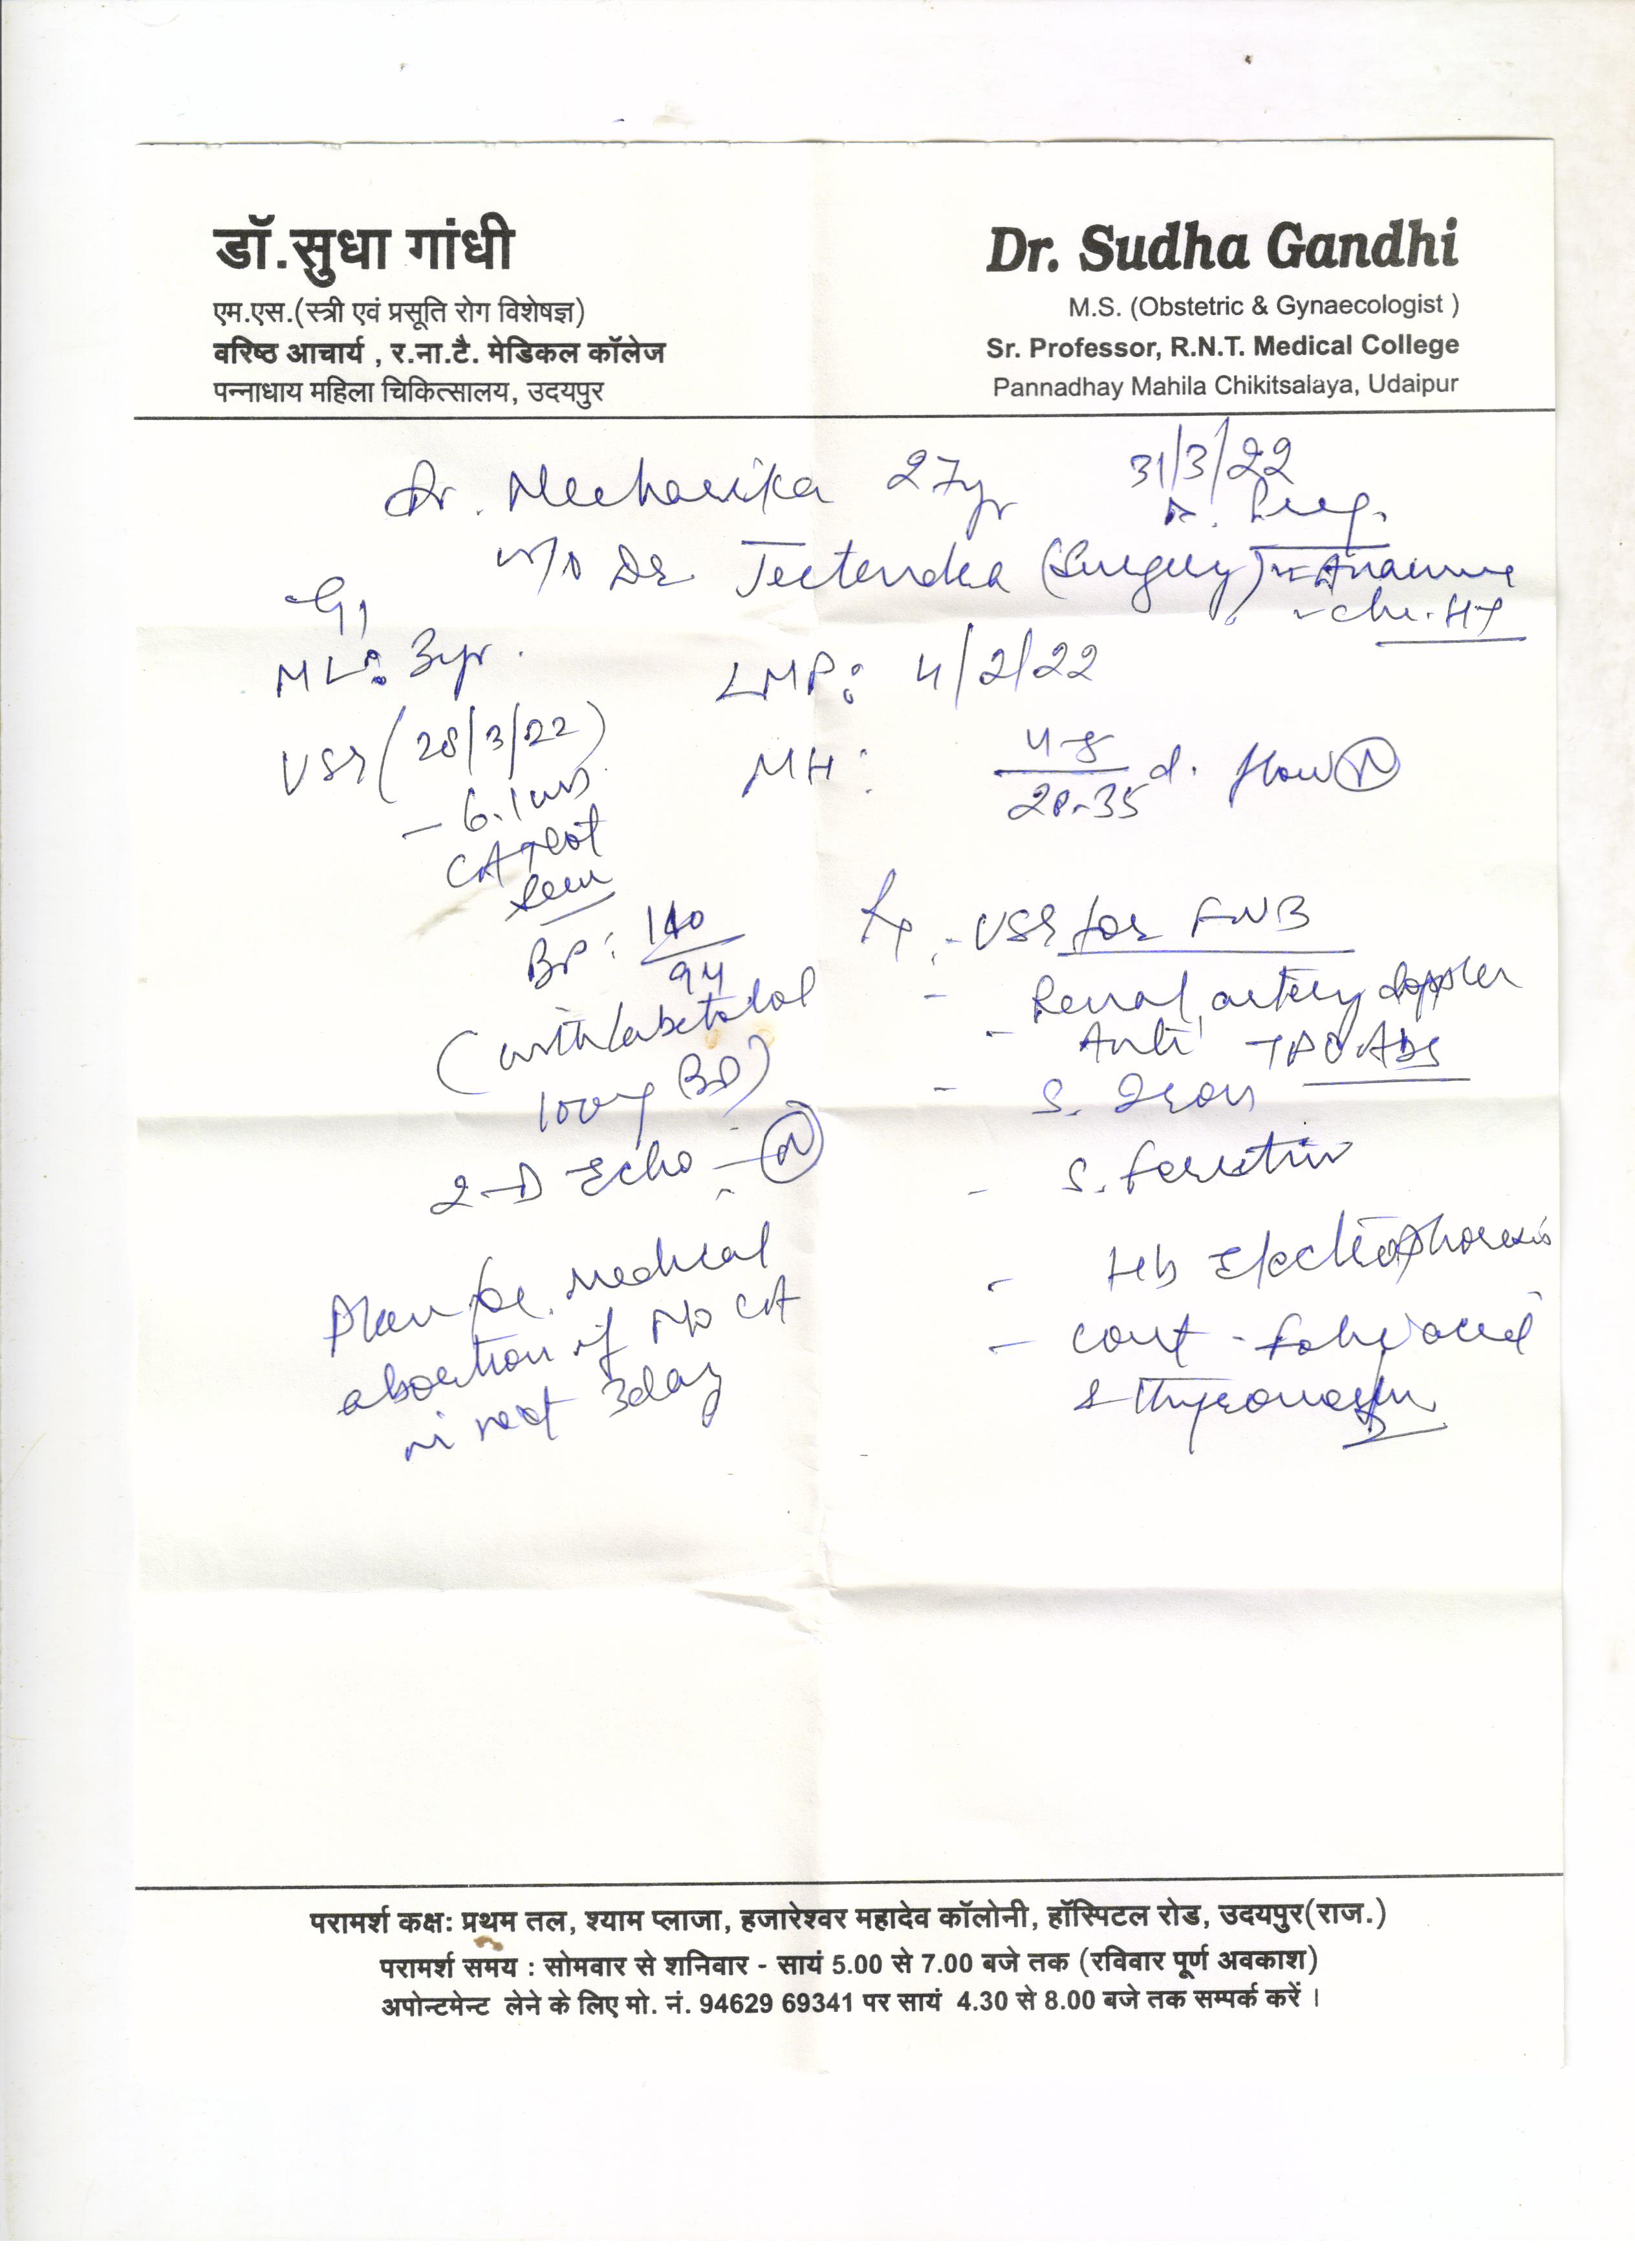 डॉ.सुधा गांधी
एम.एस.(स्त्री एवं प्रसूति रोग विशेषज्ञ)
वरिष्ठ आचार्य , र.ना.टै. मेडिकल कॉलेज
पन्नाधाय महिला चिकित्सालय, उदयपुर
Dr. Sudha Gandhi
M.S. (Obstetric & Gynaecologist )
Sr. Professor, R.N.T. Medical College
Pannadhay Mahila Chikitsalaya, Udaipur
31/3/22
Dr. 27yr
w/o Dr. Jeetendra (Surgery)
G1
ML: 3yr.
LMP: 4/2/22
USG (28/3/22)
- 6.1 wks
CA not
seen
MH: 4-5/28-35 d. flow N
BP: 140/94
(with labetalol
100mg BD)
2-D Echo - N
Plan for medical
abortion if no CA
in next 3day
- USG for FWB
- Renal artery doppler
- Anti TPO Abs
- S. Iron
- S. Ferritin
- Hb Electrophoresis
- cont - folic acid
परामर्श कक्ष: प्रथम तल, श्याम प्लाजा, हजारेश्वर महादेव कॉलोनी, हॉस्पिटल रोड, उदयपुर(राज.)
परामर्श समय : सोमवार से शनिवार - सायं 5.00 से 7.00 बजे तक (रविवार पूर्ण अवकाश)
अपोन्टमेन्ट लेने के लिए मो. नं. 94629 69341 पर सायं 4.30 से 8.00 बजे तक सम्पर्क करें ।